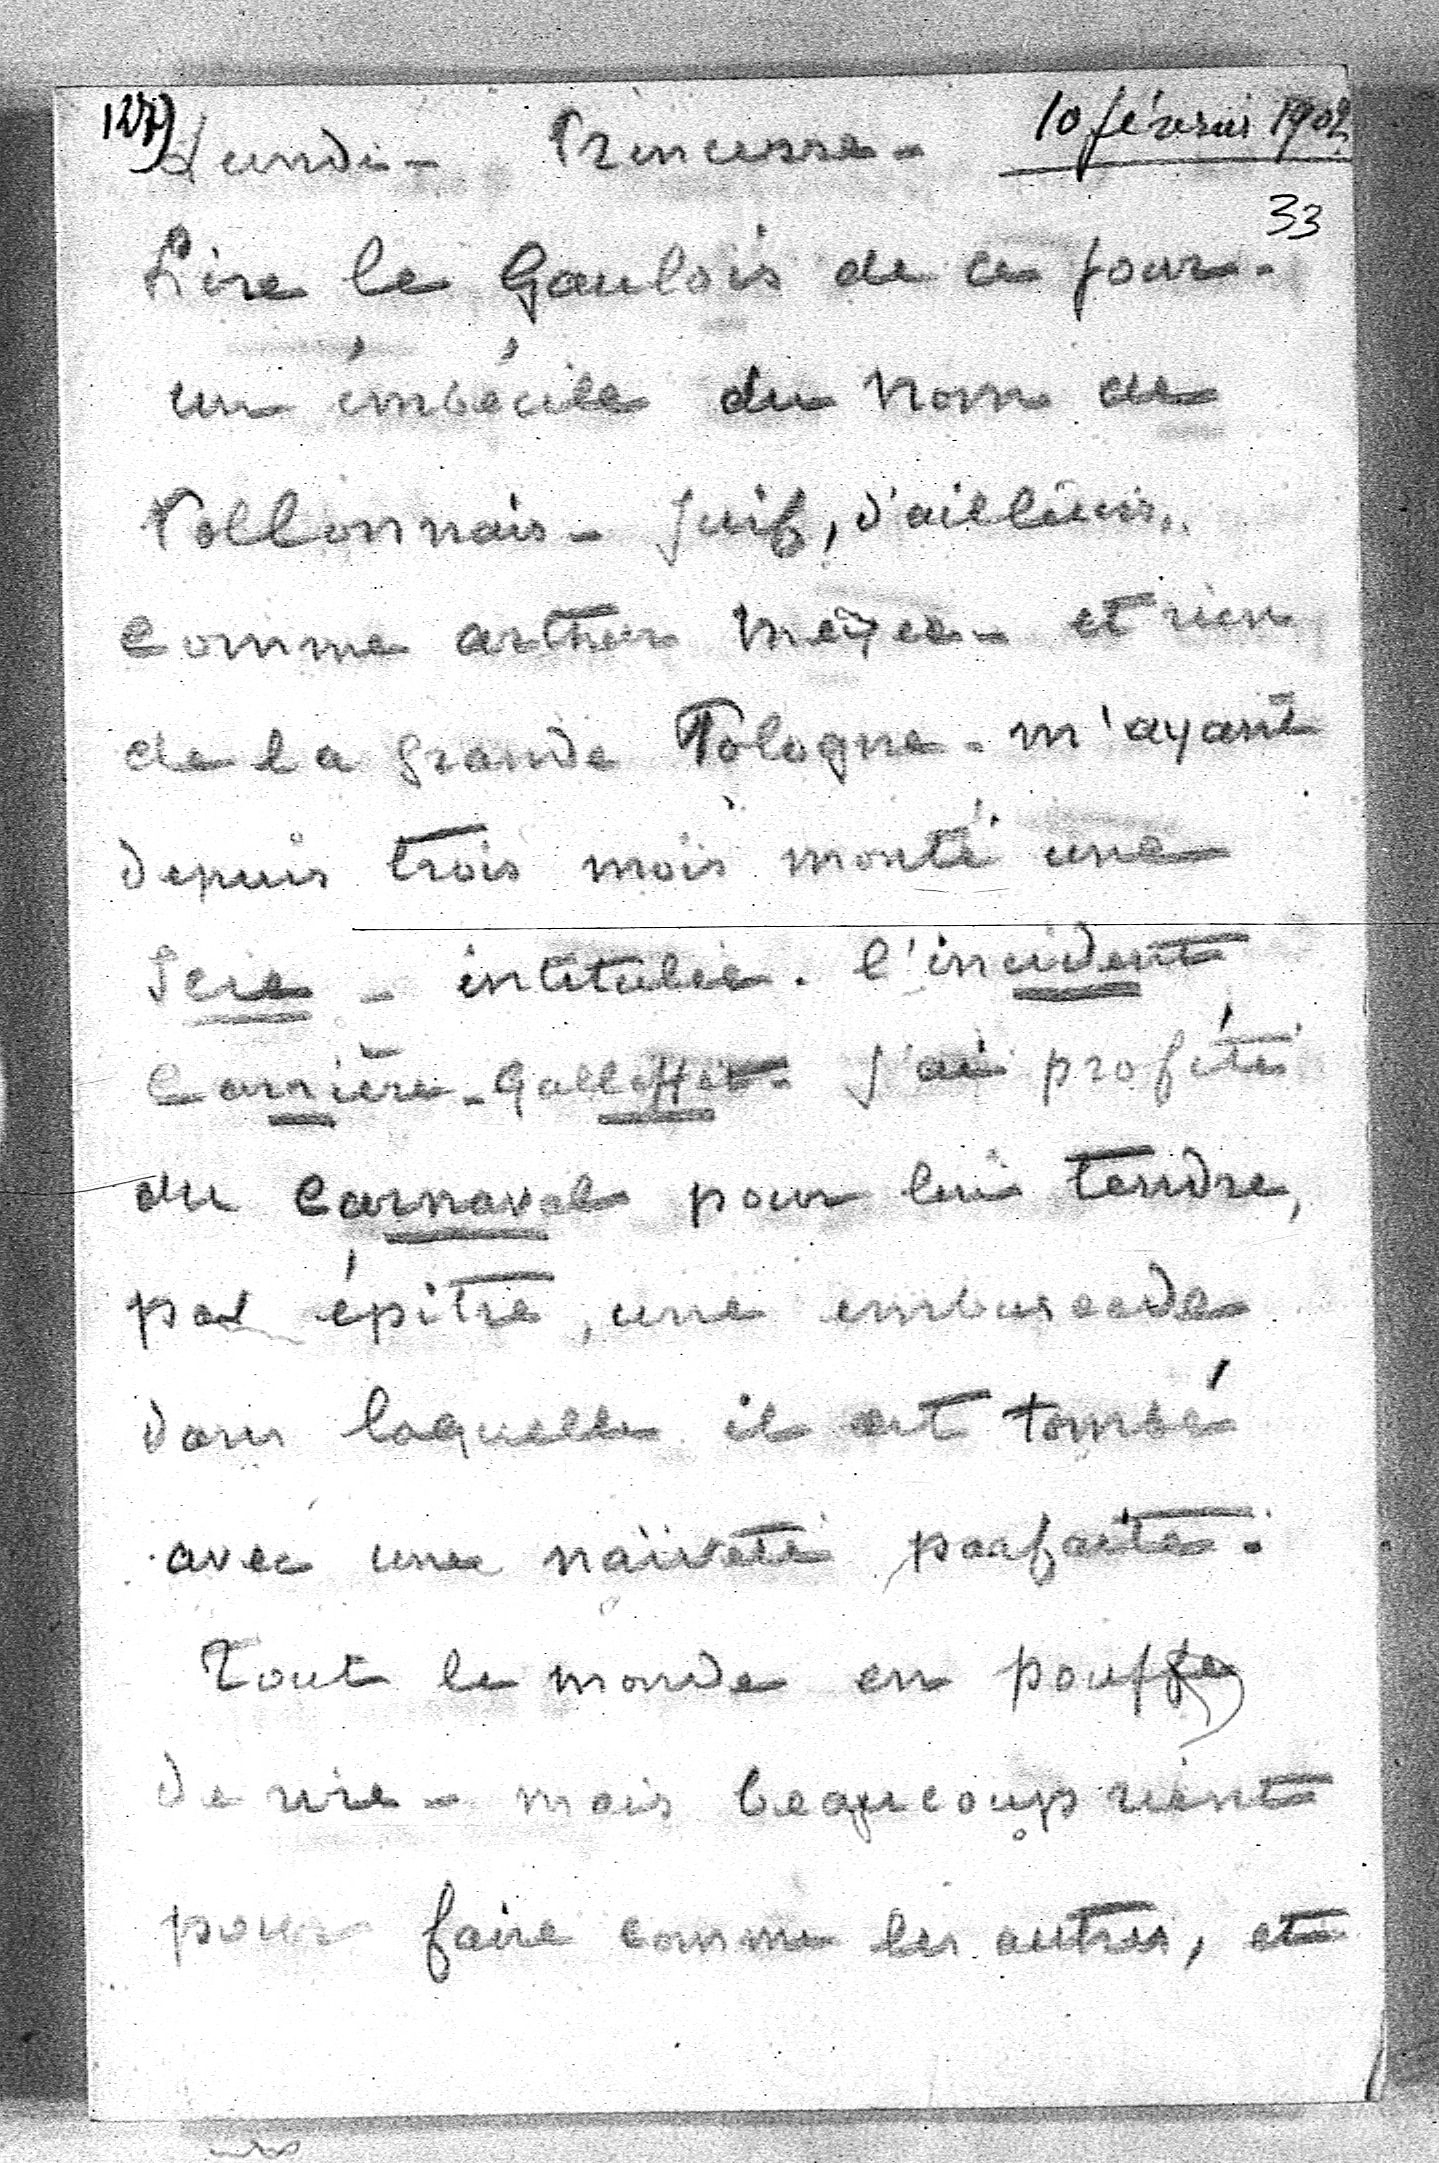 127) Lundi - Princesse - 10 février 1902
33
Lire le Gaulois de ce jour -
un imbécile du nom de
Pollonnais - Juif, d'ailleurs,
comme arthur Meyer - et rien
de la grande Pologne - m'ayant
depuis trois mois monté une
Scie - intitulée - l'incident
Carrière - Galliffet - J'ai profité
du Carnaval pour lui tendre,
par épître, une embuscade
dans laquelle il est tombé
avec une naïveté parfaite.
Tout le monde en pouffe
de rire - mais beaucoup rient
pour faire comme les autres, et